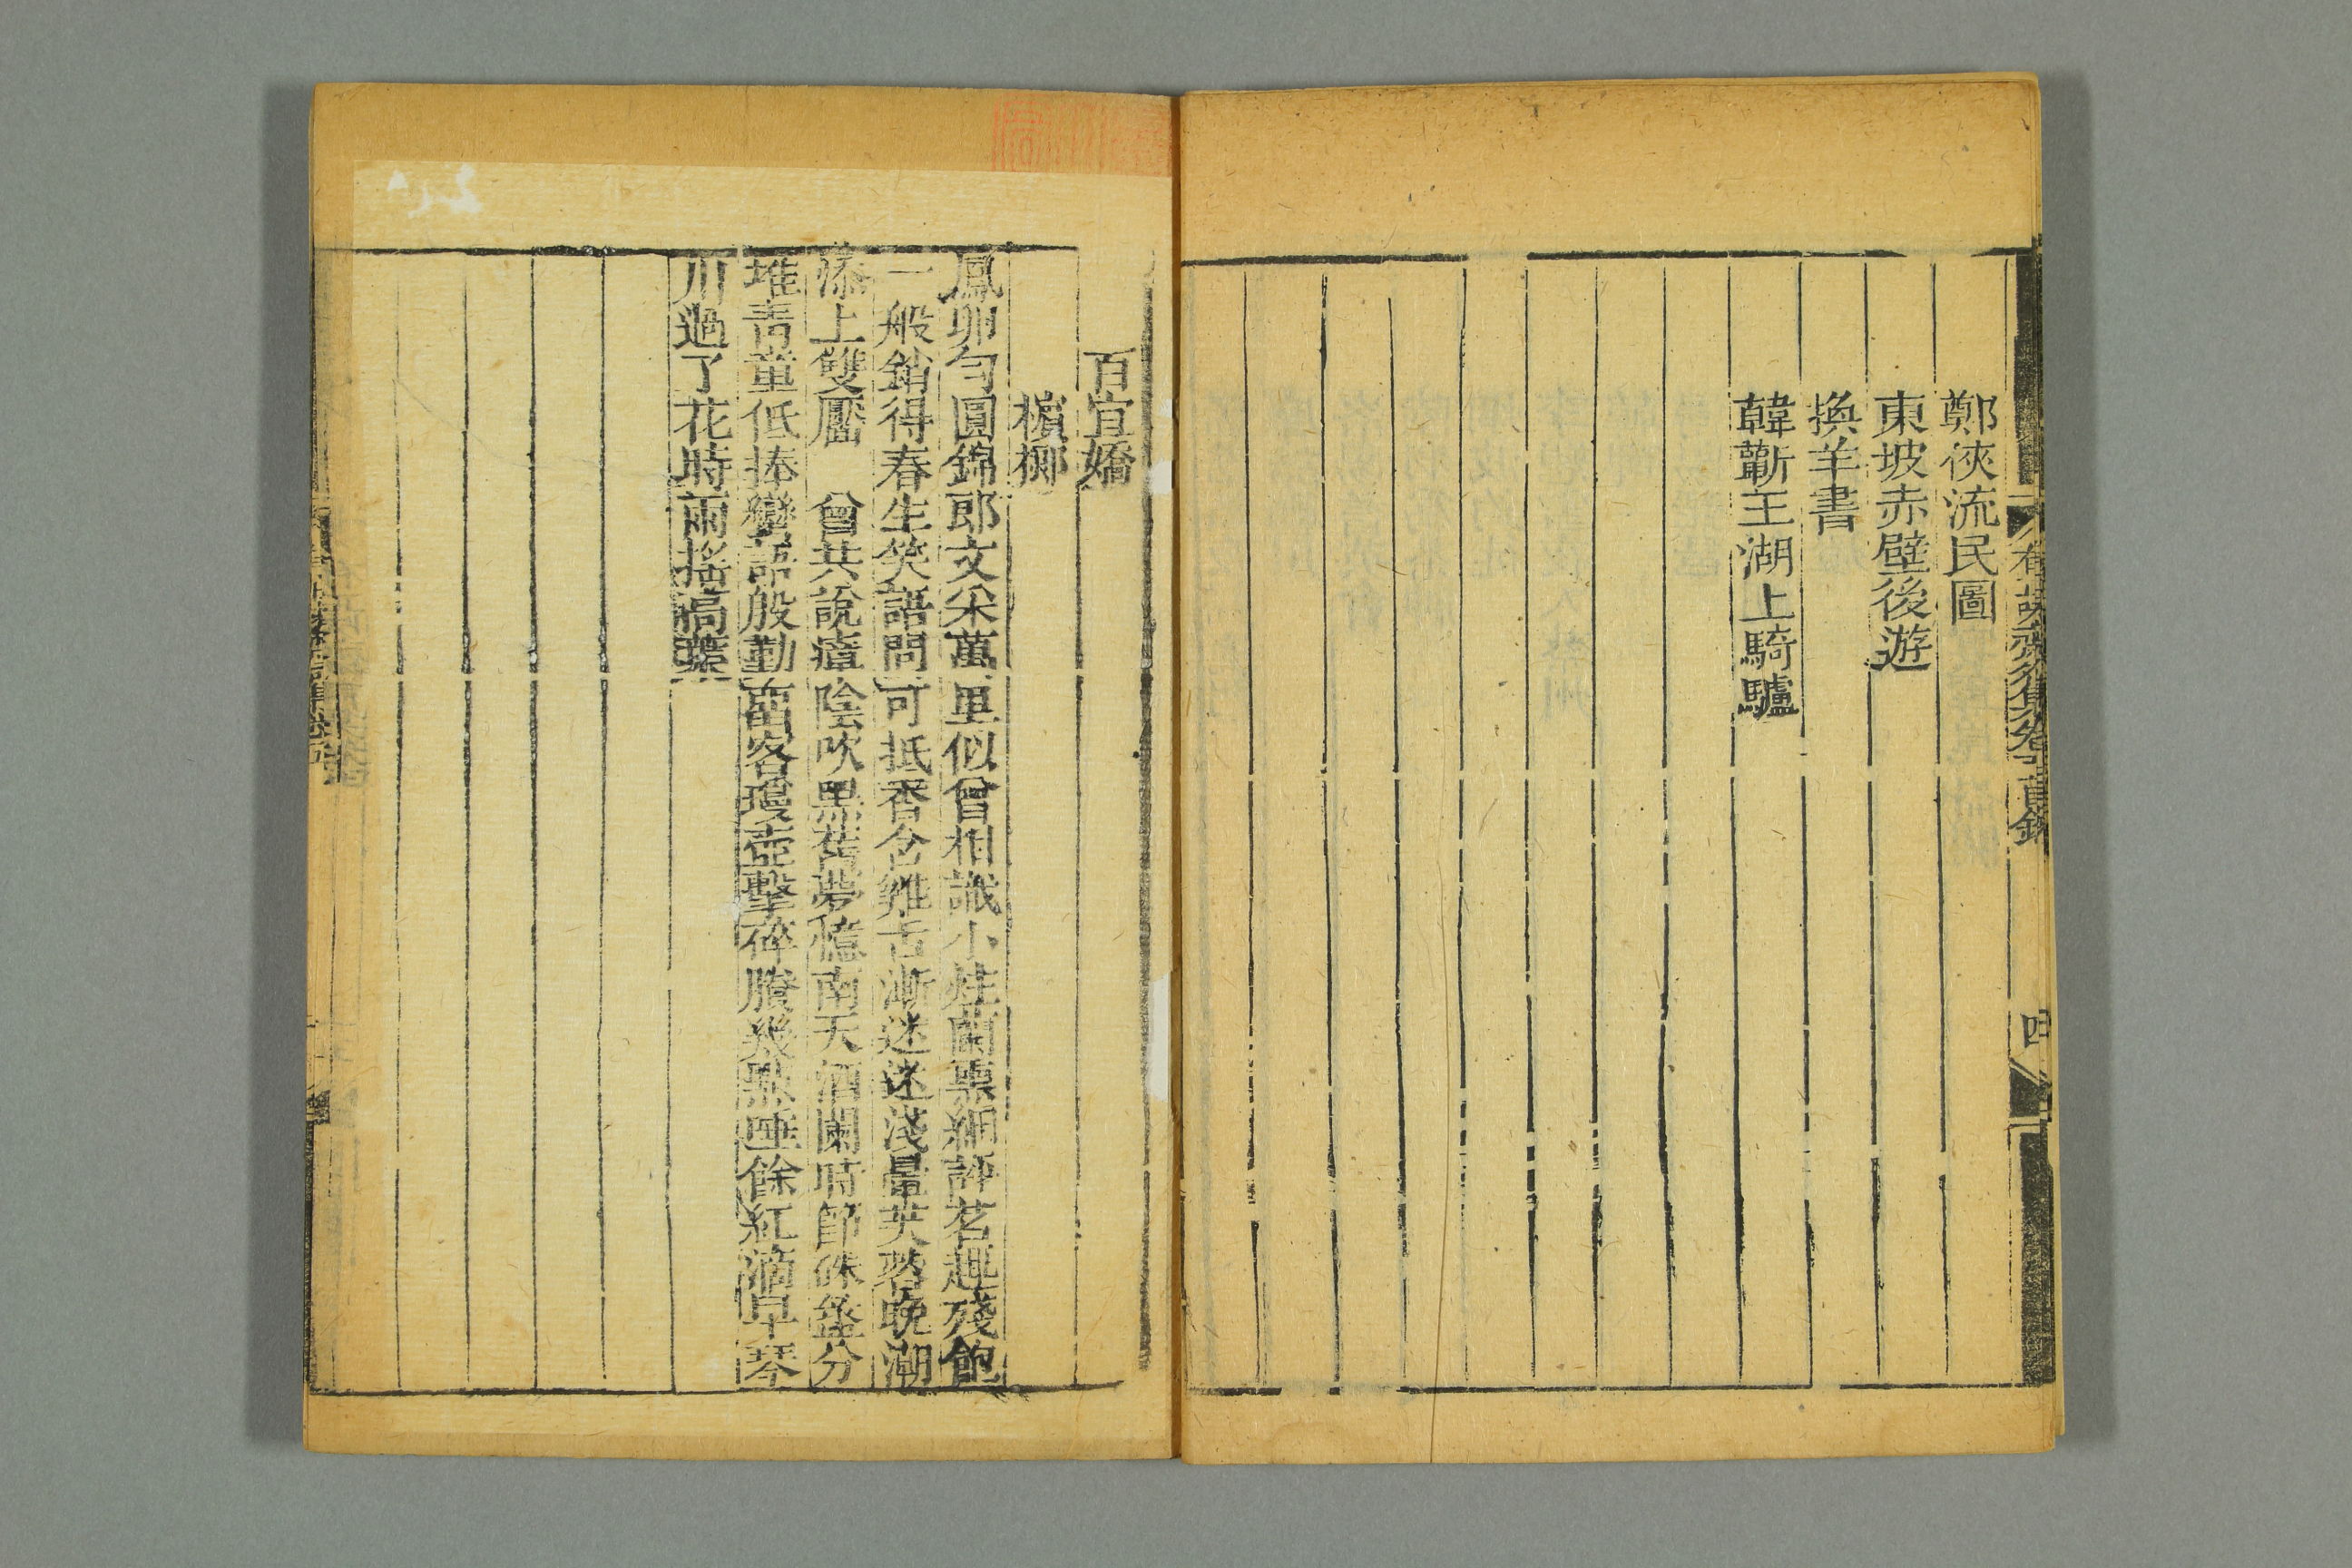 鄭俠流民圖
東坡赤壁後遊
換羊書
韓蘄王湖上騎驢
四
百宜嬌
檳榔
鳳卵勻圓錦郎文采萬里似曾相識小炷蘭熏細評茗趣殘飽
一般銷得春生笑語問可抵香含雞舌漸迷迷淺暈英簪晚潮
添上雙靨　曾共說瘴陰吹黑舊夢憶南天酒闌時節硃盤分
堆靑童低捧蠻語殷勤畱客瓊壺擊碎賸幾點唾餘紅滴早琴
川過了花時雨搖